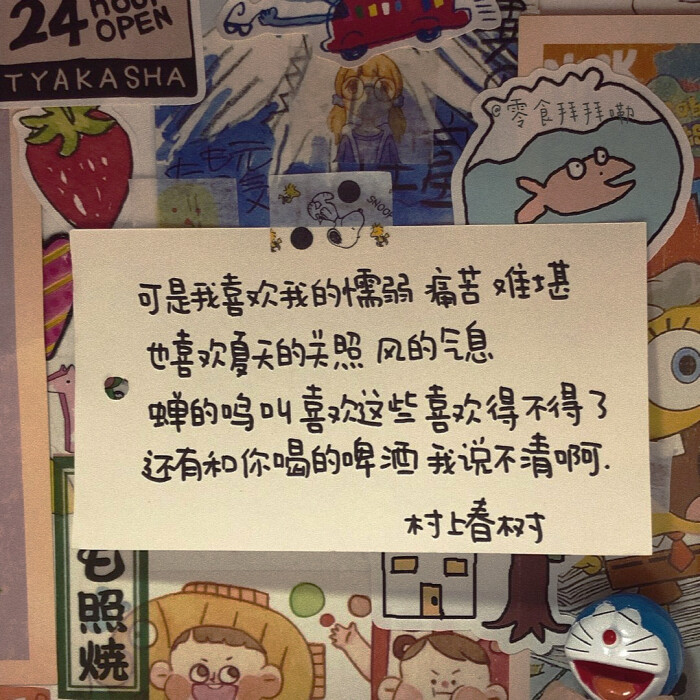 24 HOUR
OPEN
TYAKASHA
SNOOPY
@零食拜拜嘞
可是我喜欢我的懦弱 痛苦 难堪
也喜欢夏天的关照 风的气息
蝉的鸣叫 喜欢这些 喜欢得不得了
还有和你喝的啤酒 我说不清啊.
村上春树
照
燒